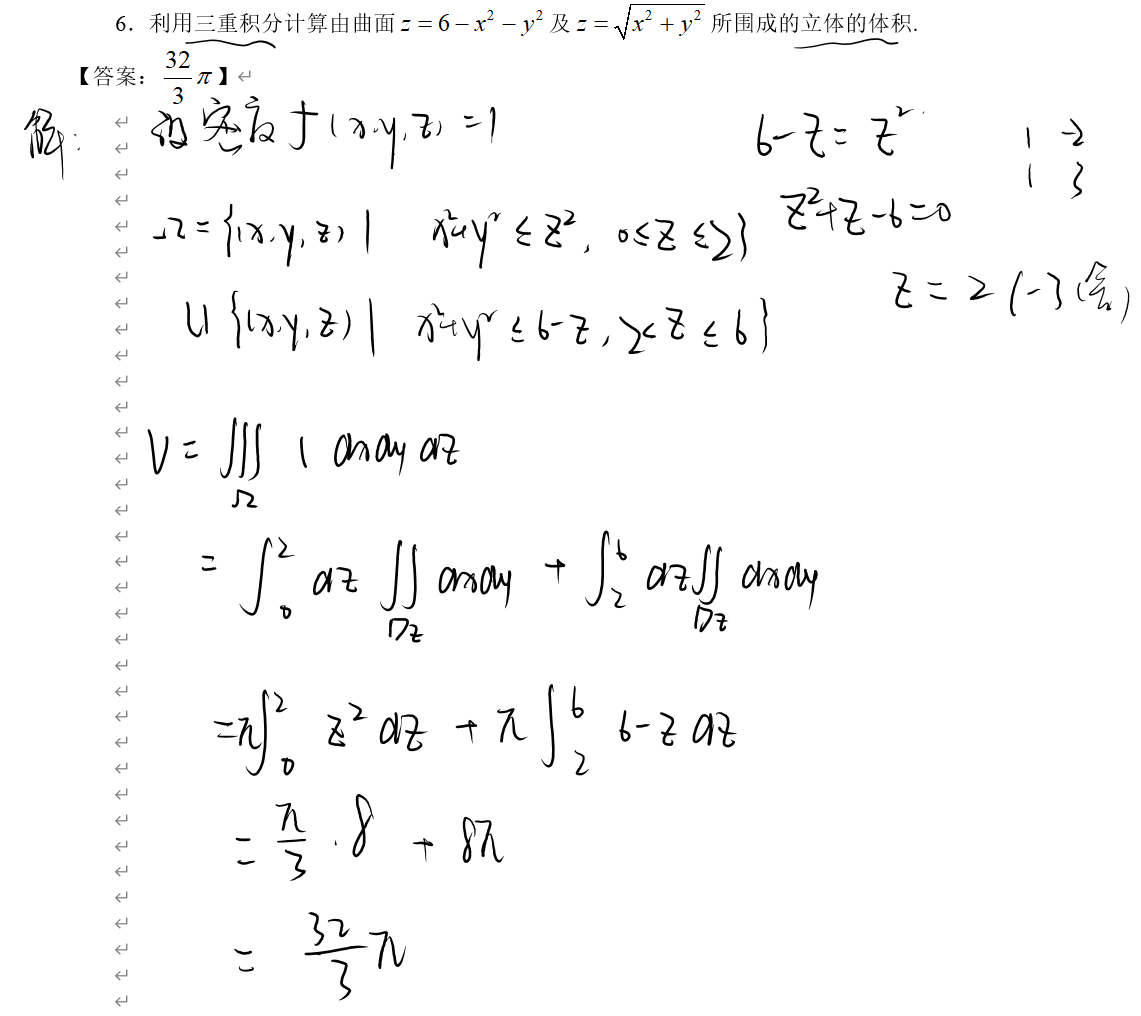 6．利用三重积分计算由曲面 z = 6 − x² − y² 及 z = √(x² + y²) 所围成的立体的体积.
【答案：32/3 π】
解： 设密度 f(x,y,z) = 1
6−z = z²
1 −2
1 3
z²+z−6=0
z = 2 (−3 (舍)
Ω = {(x,y,z) | x²+y² ≤ z², 0≤z≤2}
∪ {(x,y,z) | x²+y² ≤ 6−z, 2<z≤6}
V = ∭_Ω 1 dxdydz
= ∫₀² dz ∬_Dz dxdy + ∫₂⁶ dz ∬_Dz dxdy
= π∫₀² z² dz + π∫₂⁶ 6−z dz
= π/3 · 8 + 8π
= 32/3 π